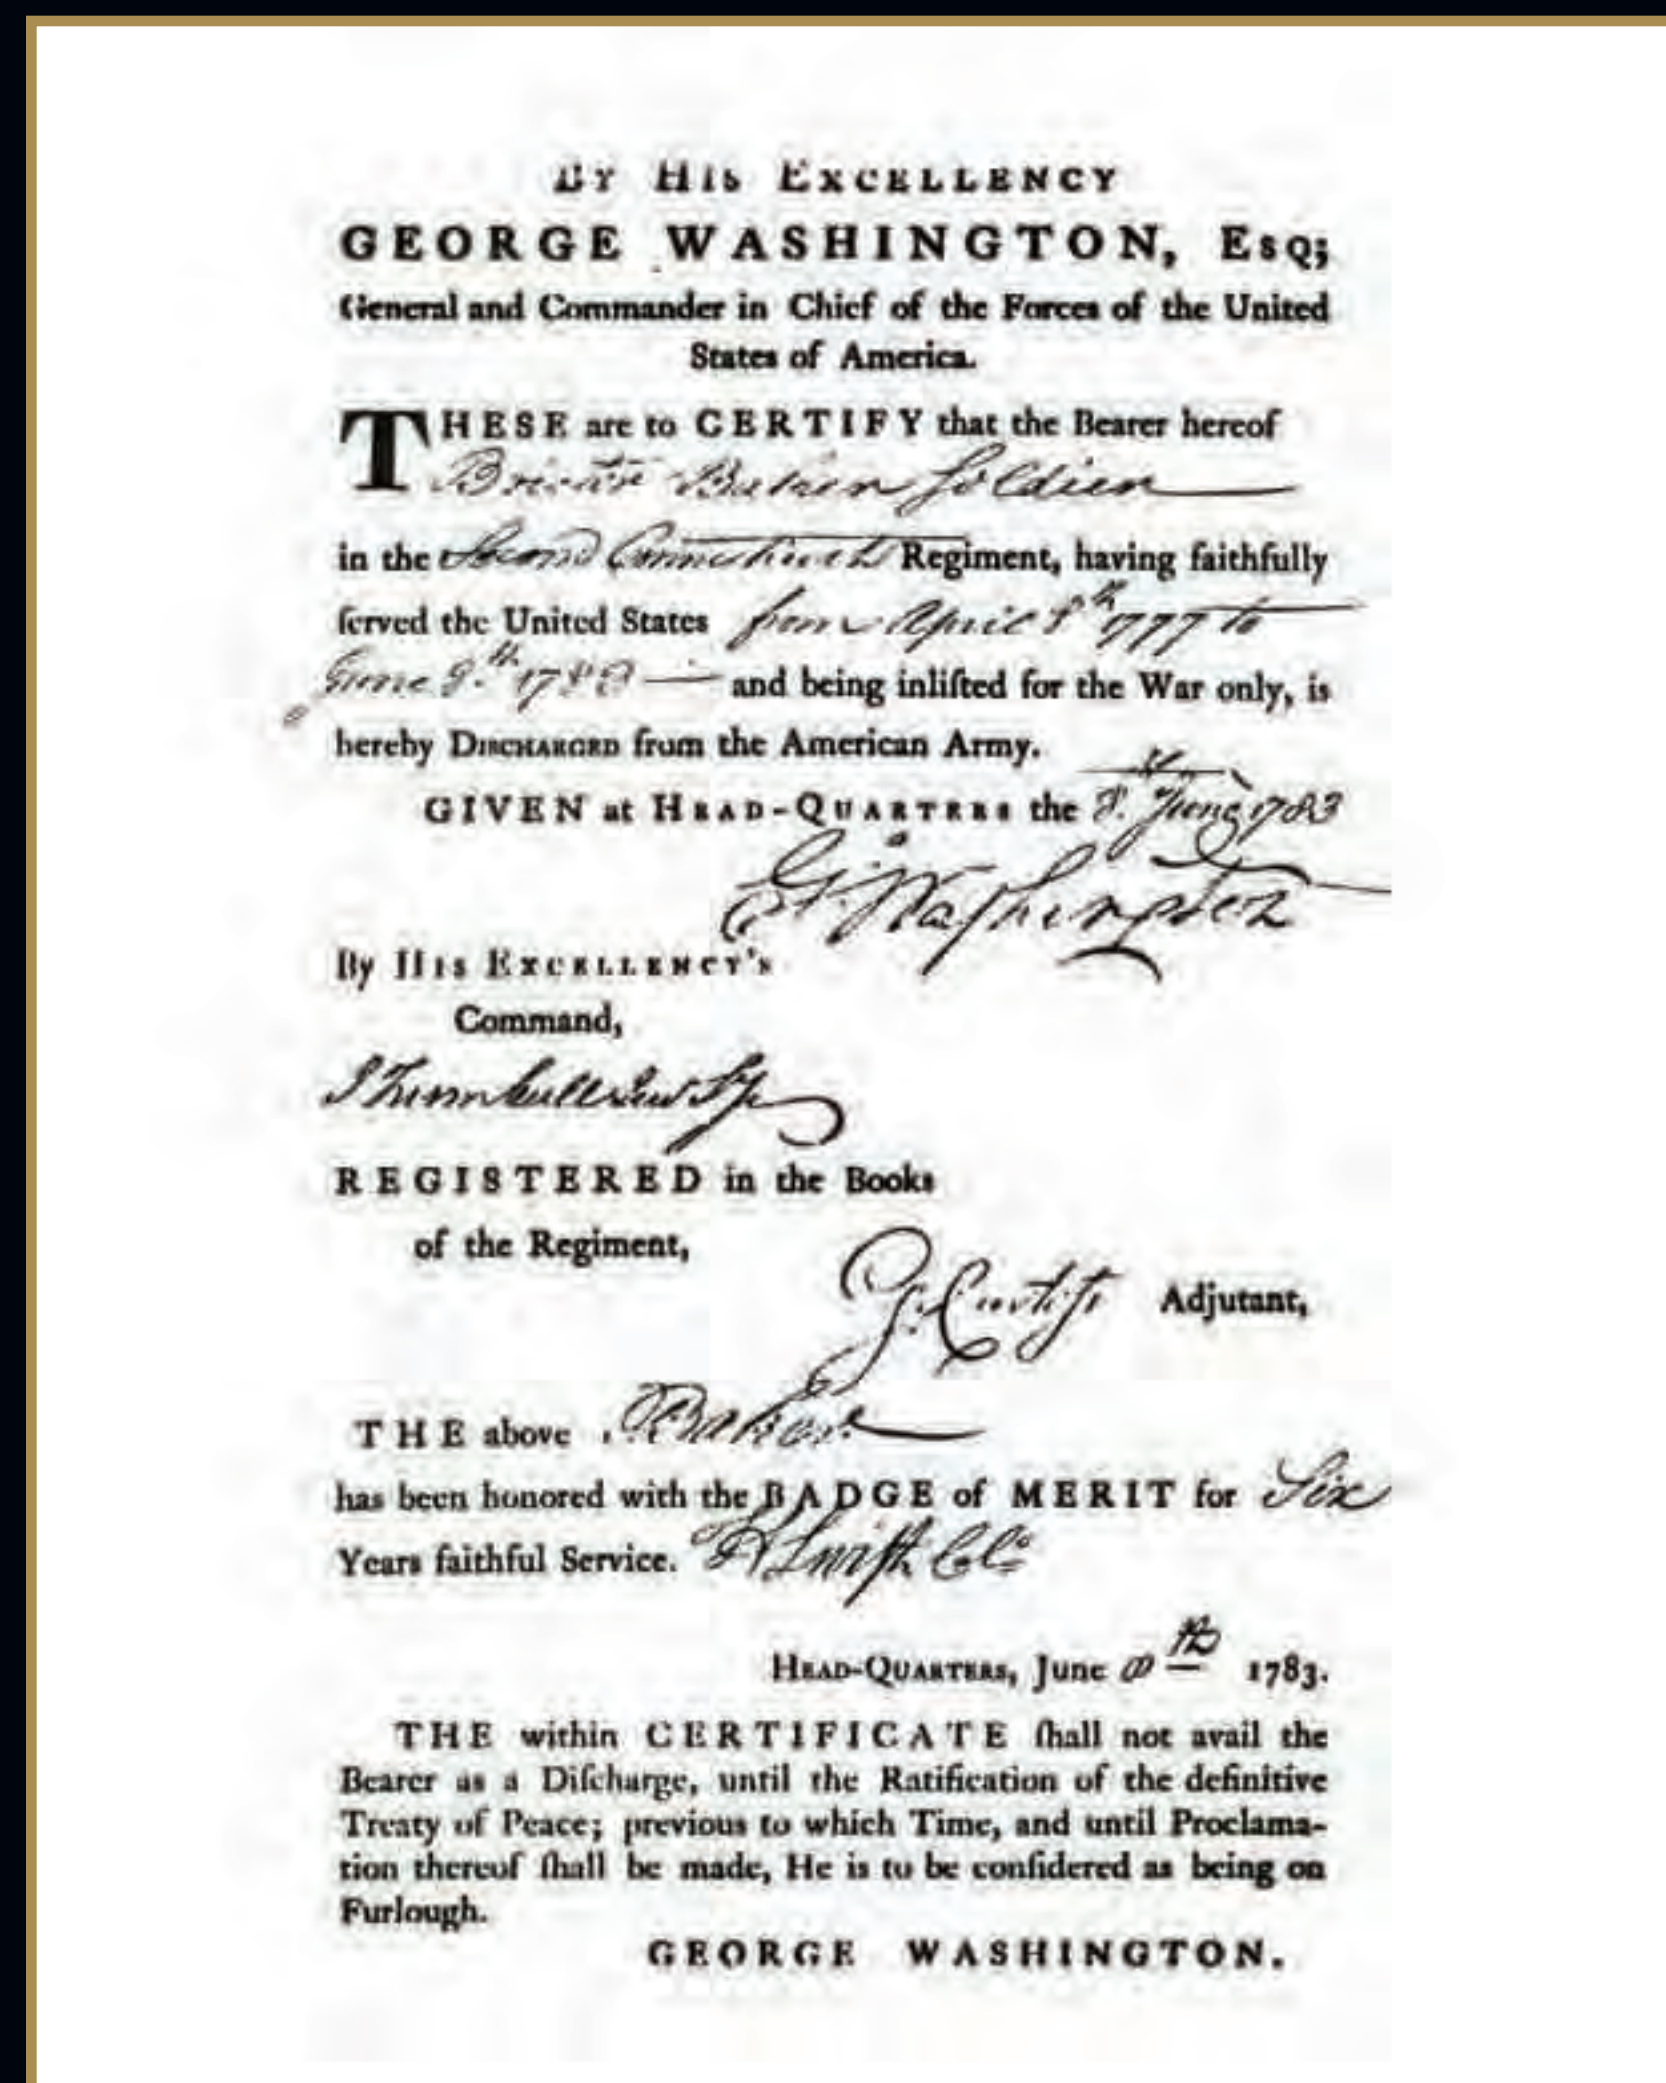 BY HIS EXCELLENCY
GEORGE WASHINGTON, ESQ;
General and Commander in Chief of the Forces of the United
States of America.
THESE are to CERTIFY that the Bearer hereof
Baker Soldier
in the Second Connecticut Regiment, having faithfully
ſerved the United States from April 8th 1777 to
June 1783 and being inliſted for the War only, is
hereby DISCHARGED from the American Army.
GIVEN at HEAD-QUARTERS the 8th June 1783
G:Washington
By HIS EXCELLENCY'S
Command,
J Trumbull Jun Sy
REGISTERED in the Books
of the Regiment,
Curtiſs Adjutant,
THE above Baker
has been honored with the BADGE of MERIT for Six
Years faithful Service. H Swift Col.
HEAD-QUARTERS, June 8th 1783.
THE within CERTIFICATE ſhall not avail the
Bearer as a Diſcharge, until the Ratification of the definitive
Treaty of Peace; previous to which Time, and until Proclama-
tion thereof ſhall be made, He is to be conſidered as being on
Furlough.
GEORGE WASHINGTON.